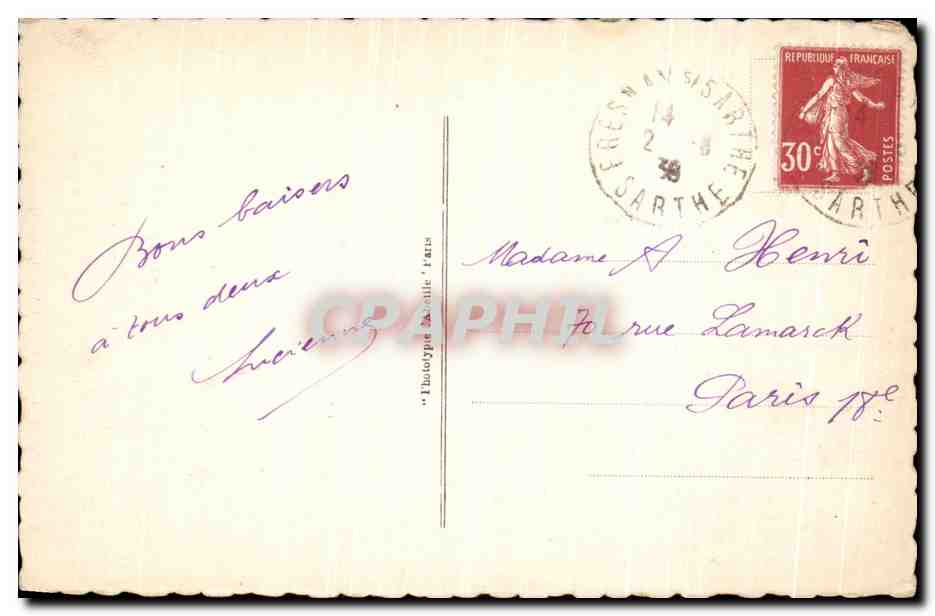 Bons baisers
à tous deux
Lucienne
"Phototypie l'Abeille" Paris
CPAPHIL
FRESNAY S/SARTHE
14
2 -8
38
SARTHE
REPUBLIQUE FRANÇAISE
30c
POSTES
SARTHE
Madame A Henri
70 rue Lamarck
Paris 18e